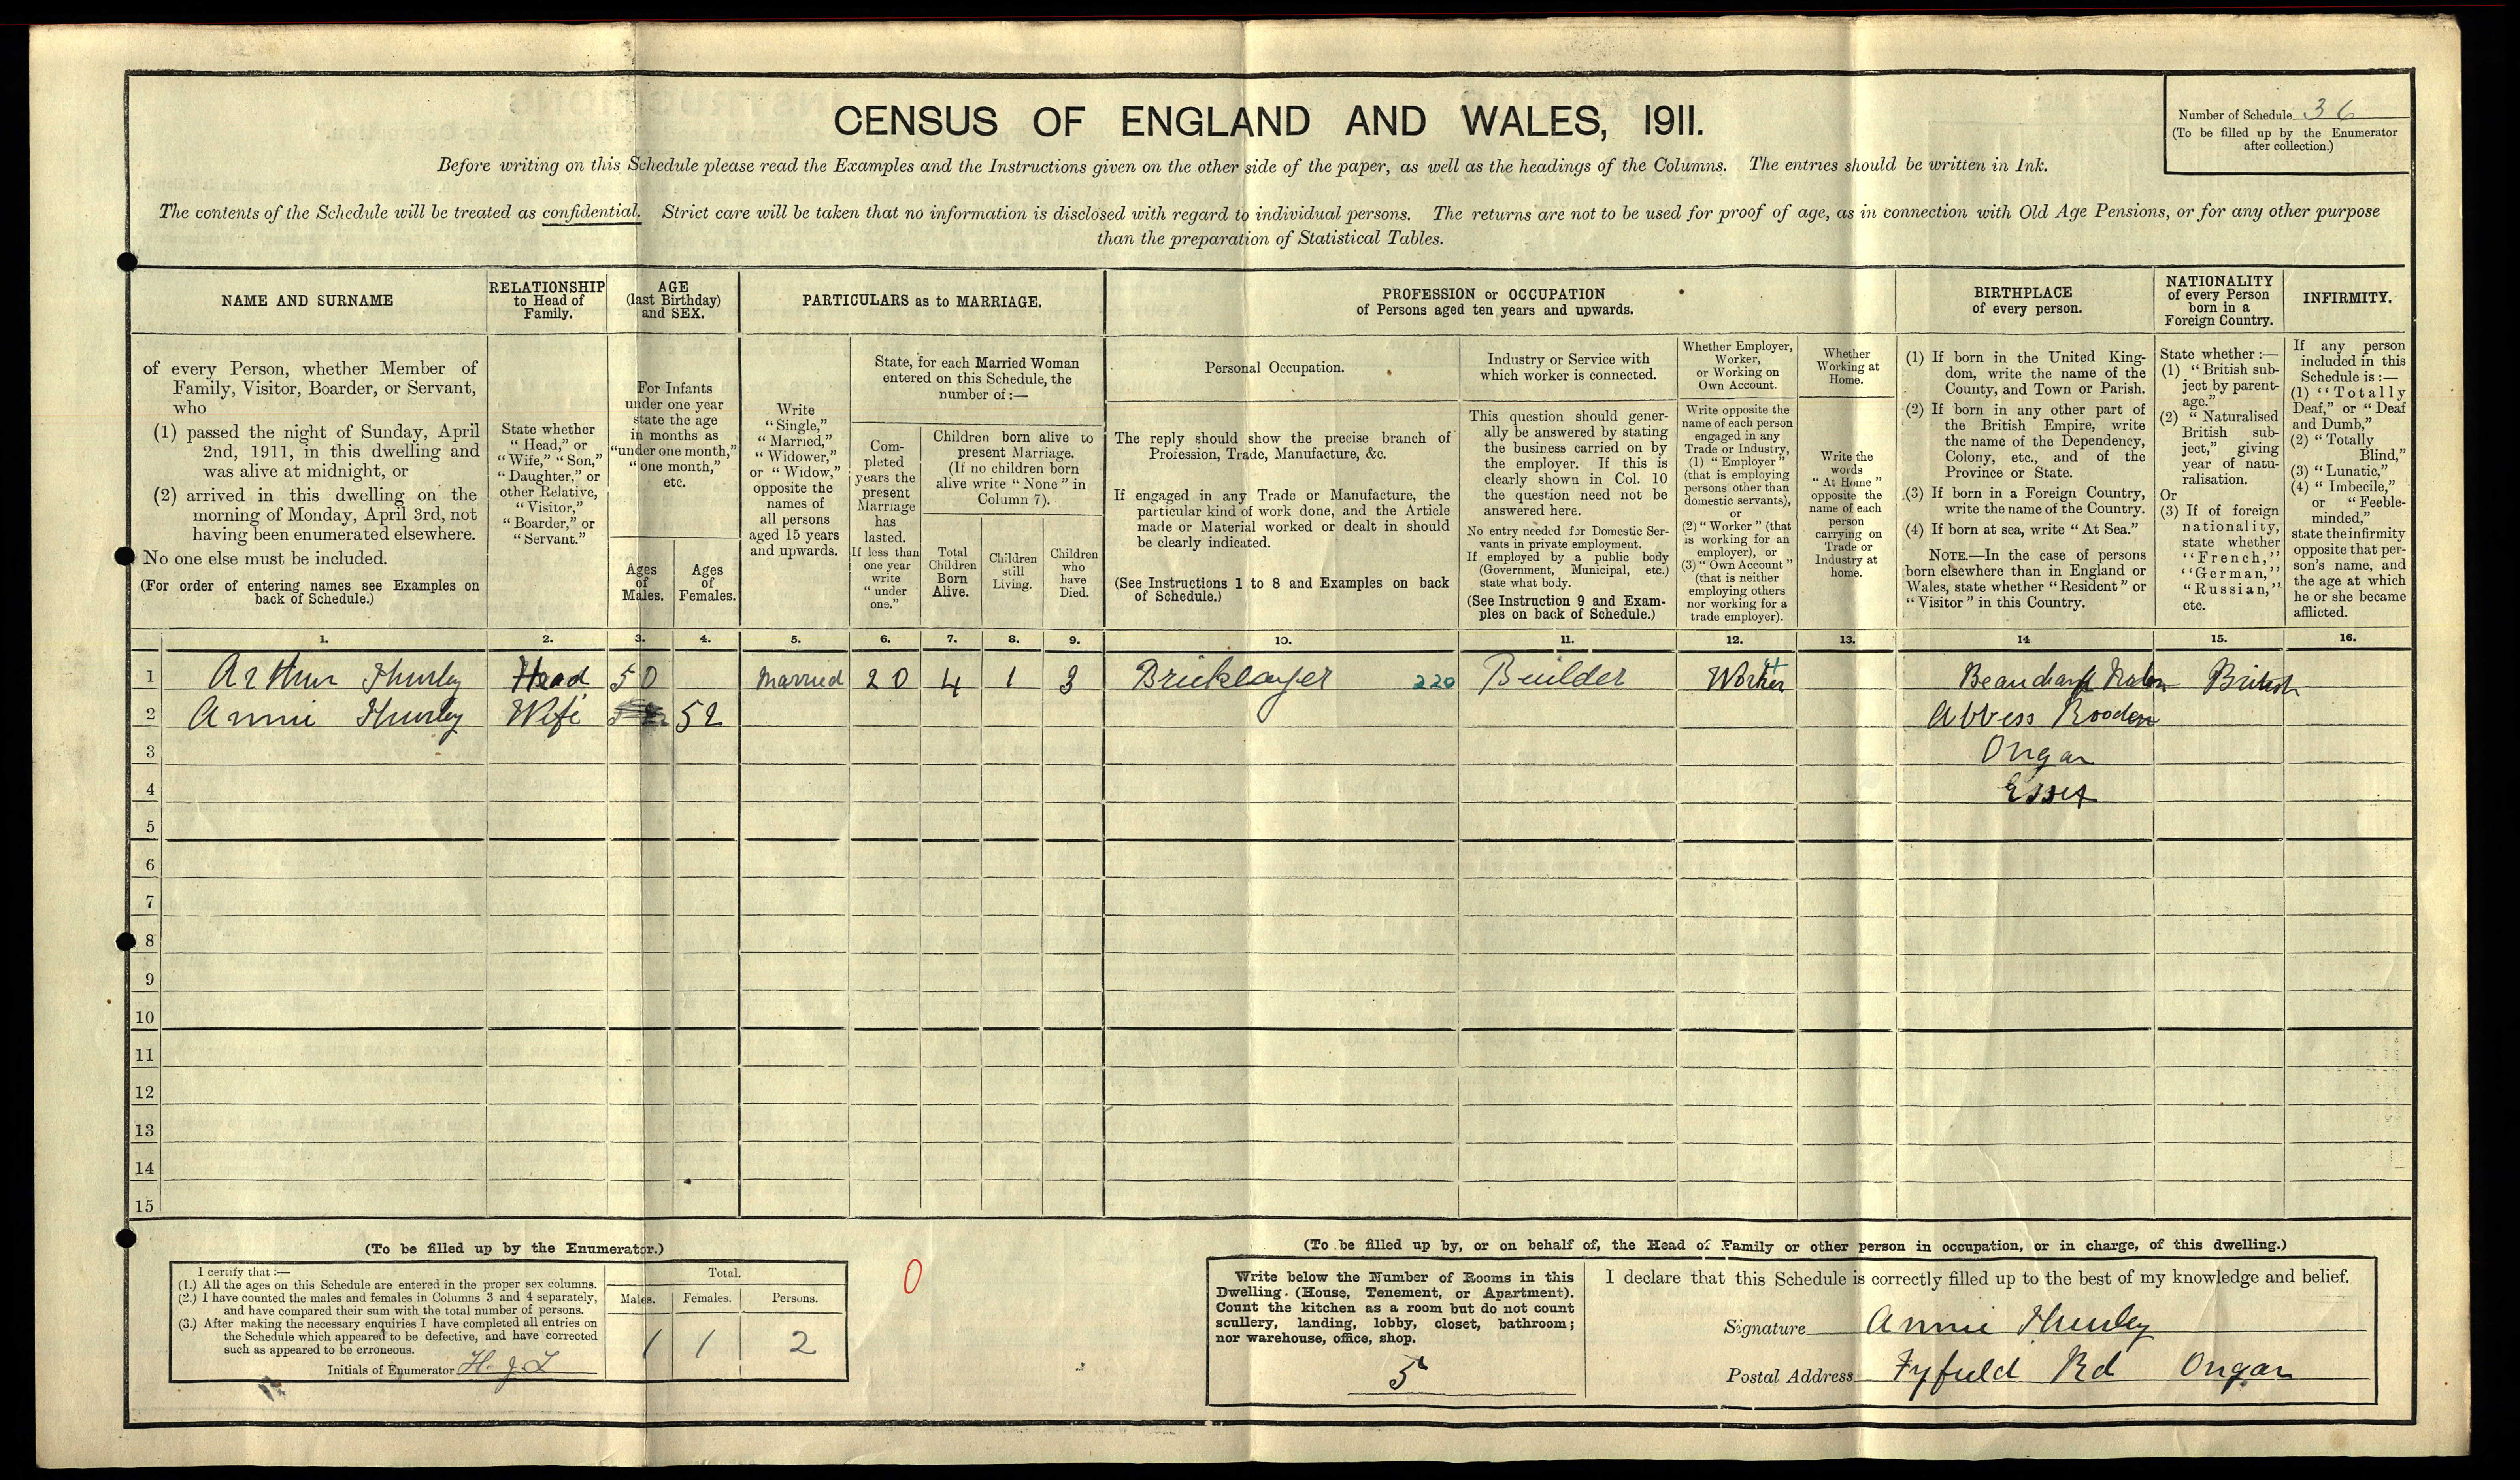 CENSUS OF ENGLAND AND WALES, 1911.
Number of Schedule 36
(To be filled up by the Enumerator
after collection.)
Before writing on this Schedule please read the Examples and the Instructions given on the other side of the paper, as well as the headings of the Columns. The entries should be written in Ink.
The contents of the Schedule will be treated as confidential. Strict care will be taken that no information is disclosed with regard to individual persons. The returns are not to be used for proof of age, as in connection with Old Age Pensions, or for any other purpose
than the preparation of Statistical Tables.
NAME AND SURNAME
of every Person, whether Member of
Family, Visitor, Boarder, or Servant,
who
(1) passed the night of Sunday, April
2nd, 1911, in this dwelling and
was alive at midnight, or
(2) arrived in this dwelling on the
morning of Monday, April 3rd, not
having been enumerated elsewhere.
No one else must be included.
(For order of entering names see Examples on
back of Schedule.)
RELATIONSHIP
to Head of
Family.
State whether
"Head," or
"Wife," "Son,"
"Daughter," or
other Relative,
"Visitor,"
"Boarder," or
"Servant."
AGE
(last Birthday)
and SEX.
For Infants
under one year
state the age
in months as
"under one month,"
"one month,"
etc.
Ages
of
Males.
Ages
of
Females.
PARTICULARS as to MARRIAGE.
Write
"Single,"
"Married,"
"Widower,"
or "Widow,"
opposite the
names of
all persons
aged 15 years
and upwards.
State, for each Married Woman
entered on this Schedule, the
number of:—
Com-
pleted
years the
present
Marriage
has
lasted.
If less than
one year
write
"under
one."
Children born alive to
present Marriage.
(If no children born
alive write "None" in
Column 7).
Total
Children
Born
Alive.
Children
still
Living.
Children
who
have
Died.
PROFESSION or OCCUPATION
of Persons aged ten years and upwards.
Personal Occupation.
The reply should show the precise branch of
Profession, Trade, Manufacture, &c.
If engaged in any Trade or Manufacture, the
particular kind of work done, and the Article
made or Material worked or dealt in should
be clearly indicated.
(See Instructions 1 to 8 and Examples on back
of Schedule.)
Industry or Service with
which worker is connected.
This question should gener-
ally be answered by stating
the business carried on by
the employer. If this is
clearly shown in Col. 10
the question need not be
answered here.
No entry needed for Domestic Ser-
vants in private employment.
If employed by a public body
(Government, Municipal, etc.)
state what body.
(See Instruction 9 and Exam-
ples on back of Schedule.)
Whether Employer,
Worker,
or Working on
Own Account.
Write opposite the
name of each person
engaged in any
Trade or Industry,
(1) "Employer"
(that is employing
persons other than
domestic servants),
or
(2) "Worker" (that
is working for an
employer), or
(3) "Own Account"
(that is neither
employing others
nor working for a
trade employer).
Whether
Working at
Home.
Write the
words
"At Home"
opposite the
name of each
person
carrying on
Trade or
Industry at
home.
BIRTHPLACE
of every person.
(1) If born in the United King-
dom, write the name of the
County, and Town or Parish.
(2) If born in any other part of
the British Empire, write
the name of the Dependency,
Colony, etc., and of the
Province or State.
(3) If born in a Foreign Country,
write the name of the Country.
(4) If born at sea, write "At Sea."
NOTE.—In the case of persons
born elsewhere than in England or
Wales, state whether "Resident" or
"Visitor" in this Country.
NATIONALITY
of every Person
born in a
Foreign Country.
State whether:—
(1) "British sub-
ject by parent-
age."
(2) "Naturalised
British sub-
ject," giving
year of natu-
ralisation.
Or
(3) If of foreign
nationality,
state whether
"French,"
"German,"
"Russian,"
etc.
INFIRMITY.
If any person
included in this
Schedule is:—
(1) "Totally
Deaf," or "Deaf
and Dumb,"
(2) "Totally
Blind,"
(3) "Lunatic,"
(4) "Imbecile,"
or "Feeble-
minded,"
state the infirmity
opposite that per-
son's name, and
the age at which
he or she became
afflicted.
1. 2. 3. 4. 5. 6. 7. 8. 9. 10. 11. 12. 13. 14 15. 16.
1 Arthur Thurley Head 50 Married 20 4 1 3 Bricklayer 220 Builder Worker Beauchamp British
2 Annie Thurley Wife 52 Abbess Rooden
3 Ongar
4 Essex
5
6
7
8
9
10
11
12
13
14
15
(To be filled up by the Enumerator.)
I certify that:—
(1.) All the ages on this Schedule are entered in the proper sex columns.
(2.) I have counted the males and females in Columns 3 and 4 separately,
and have compared their sum with the total number of persons.
(3.) After making the necessary enquiries I have completed all entries on
the Schedule which appeared to be defective, and have corrected
such as appeared to be erroneous.
Initials of Enumerator H. J. L
Total.
Males. Females. Persons.
1 1 2
0
(To be filled up by, or on behalf of, the Head of Family or other person in occupation, or in charge, of this dwelling.)
Write below the Number of Rooms in this
Dwelling (House, Tenement, or Apartment).
Count the kitchen as a room but do not count
scullery, landing, lobby, closet, bathroom;
nor warehouse, office, shop.
5
I declare that this Schedule is correctly filled up to the best of my knowledge and belief.
Signature Annie Thurley
Postal Address Fyfield Rd Ongar